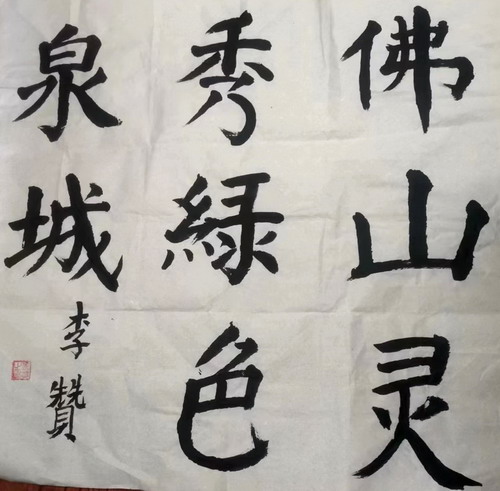 佛山灵
秀緑色
泉城
李贊